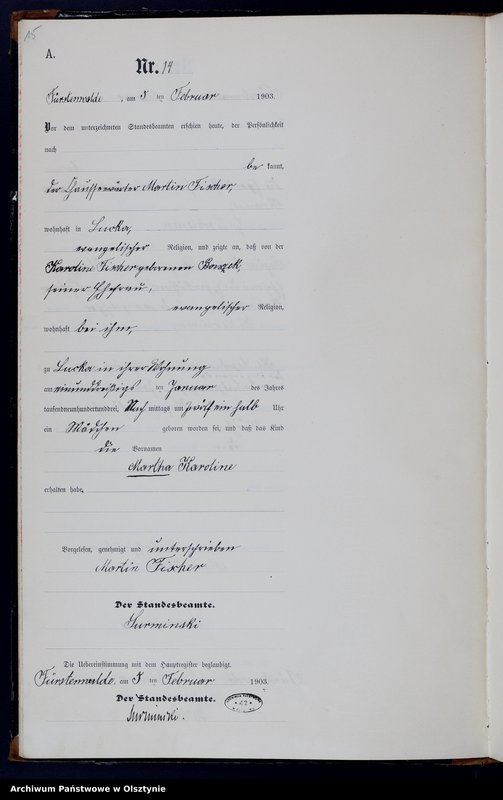 15
A.
Nr. 14
Fürstenwalde, am 5 ten Februar 1903.
Vor dem unterzeichneten Standesbeamten erschien heute, der Persönlichkeit
nach
be kannt,
der Chausseewärter Martin Fischer,
wohnhaft in Lucka,
evangelischer Religion, und zeigte an, daß von der
Karoline Fischer geborenen
seiner Ehefrau,
evangelischer Religion,
wohnhaft bei ihm,
zu Lucka in ihrer Wohnung
am einunddreißigs ten Januar des Jahres
tausendneunhundertunddrei, Nach mittags um zwölf ein halb Uhr
ein Mädchen geboren worden sei, und daß das Kind
die Vornamen
Martha Karoline
erhalten habe.
Vorgelesen, genehmigt und unterschrieben
Martin Fischer
Der Standesbeamte.
Surminski
Die Uebereinstimmung mit dem Hauptregister beglaubigt.
Fürstenwalde, am 5 ten Februar 1903.
Der Standesbeamte.
Surminski.
Archiwum Państwowe w Olsztynie